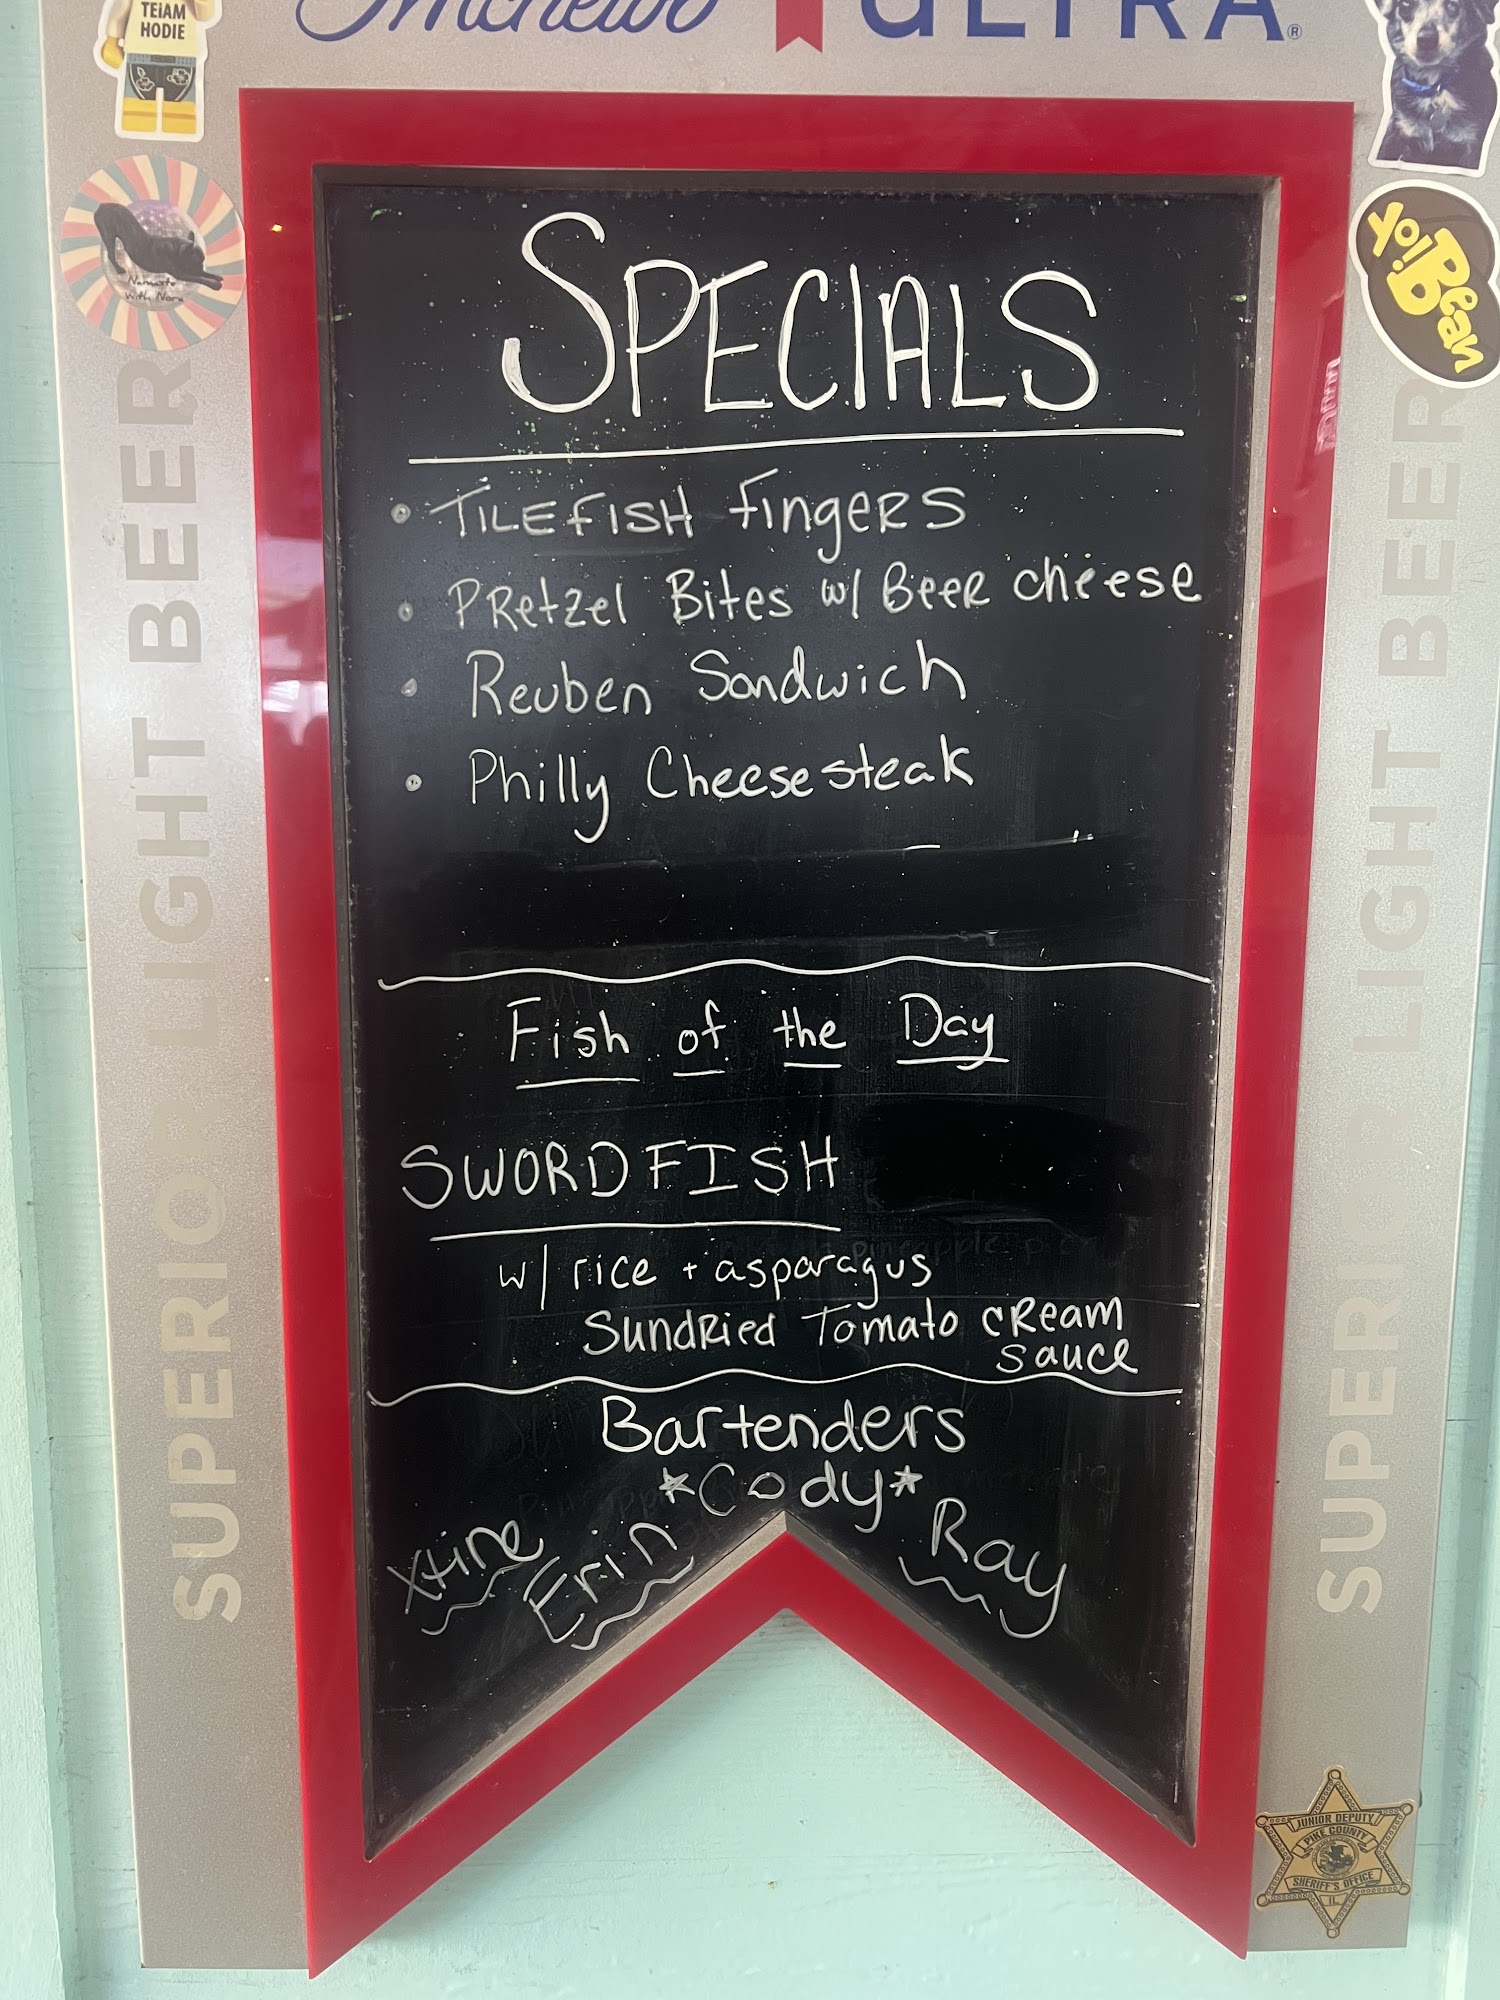 TEiAM
HODIE
Michelob ULTRA®
Namaste
With Nora
Yo!
Bean
SUPERIOR LIGHT BEER
SUPERIOR LIGHT BEER
SPECIALS
• TILEFISH fingERS
• PRetzel Bites w/ BeeR cheese
• Reuben Sandwich
• Philly Cheesesteak
Fish of the Day
SWORDFISH
w/ rice + asparagus
SundRied Tomato cReam
sauce
Bartenders
*Cody*
Xtine Erin Ray
JUNIOR DEPUTY
PIKE COUNTY
SHERIFF'S OFFICE
IL